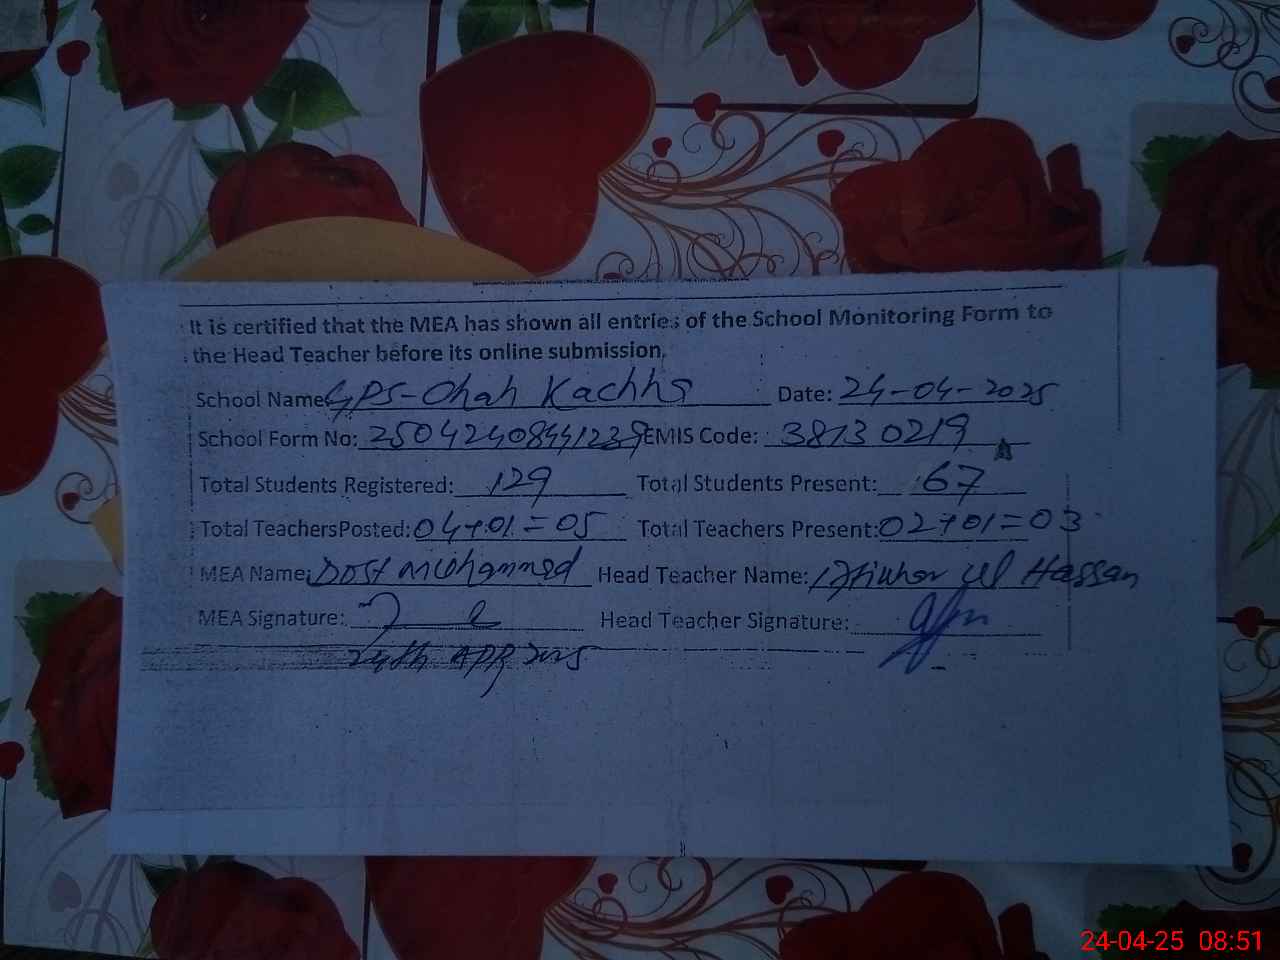 It is certified that the MEA has shown all entries of the School Monitoring Form to
the Head Teacher before its online submission.
School Name: GPS-Chah Kachha Date: 24-04-2025
School Form No: 25042408441239 EMIS Code: 38130219
Total Students Registered: 129 Total Students Present: 67
Total TeachersPosted: 04+01=05 Total Teachers Present: 02+01=03
MEA Name: Dost Mohammad Head Teacher Name: ul Hassan
MEA Signature: Head Teacher Signature:
24th APR 2025
24-04-25 08:51